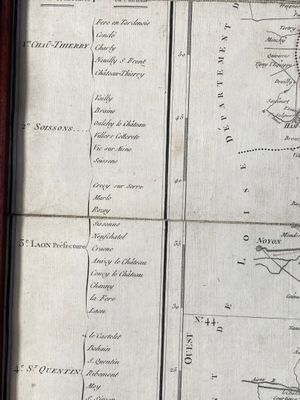 Fere en Tardenois
Condé
Charly
1er CHAÛ-THIERRY
Neuilly St Front
Château-Thierry
Vailly
Braine
Oulchy le Château
2e SOISSONS
Villers Cotterets
Vic sur Aisne
Soissons
Crecy sur Serre
Marle
Rozoy
Sissonne
Neufchatel
3e LAON Préfecture
Craone
Anizy le Château
Coucy le Château
Chauny
la Fere
Laon
le Catelet
Bohain
S. Quentin
4e St QUENTIN
Ribemont
Moy
S. Simon
50
45
40
35
30
OUEST
No. 44.
DÉPARTEMENT D
E L'OISE
NOYON
HAM